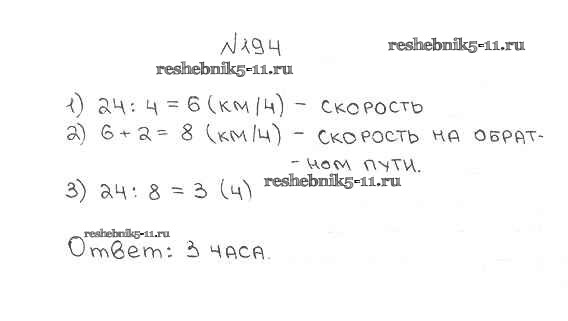 №194
reshebnik5-11.ru
reshebnik5-11.ru
1) 24 : 4 = 6 (км/ч) – скорость
2) 6 + 2 = 8 (км/ч) – скорость на обрат-
- ном пути.
reshebnik5-11.ru
3) 24 : 8 = 3 (ч)
reshebnik5-11.ru
Ответ: 3 часа.